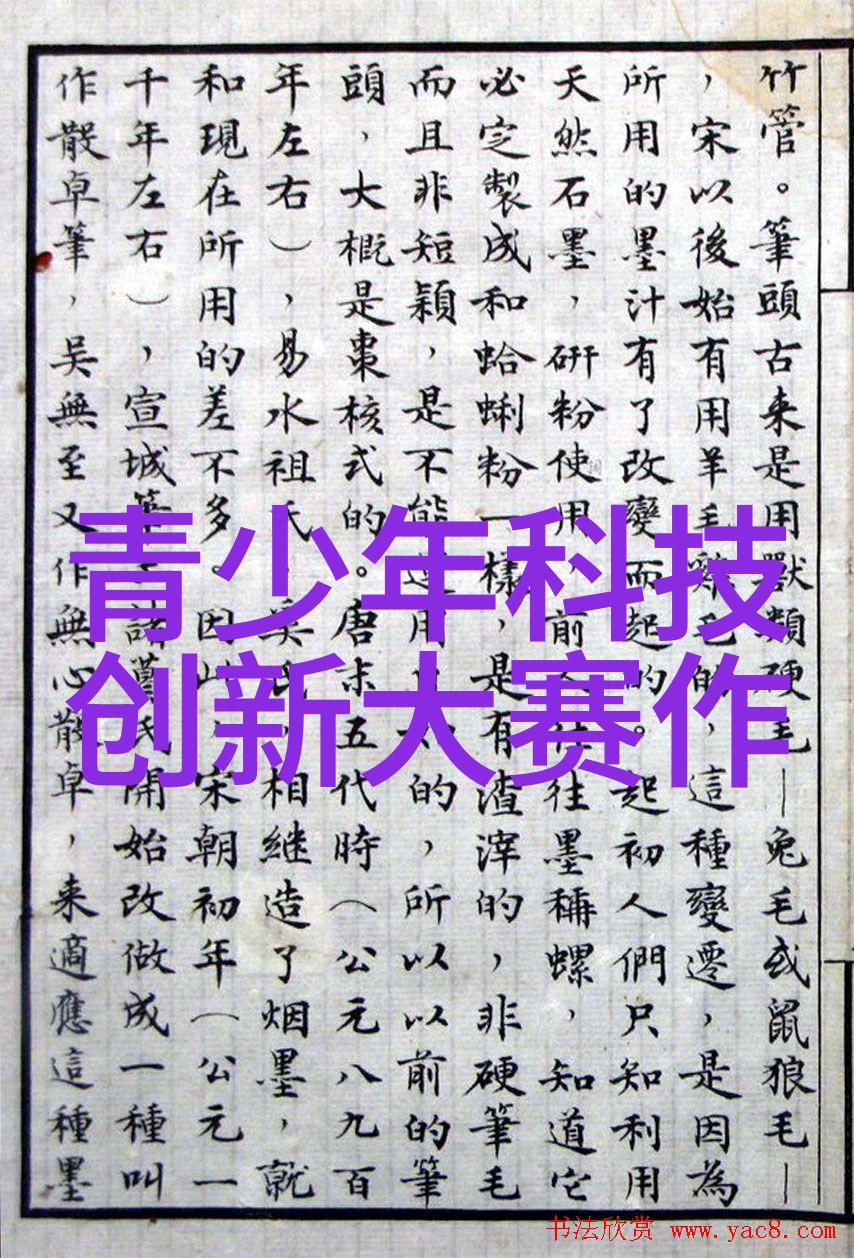 竹管。筆頭古来是用獸類硬毛－兔毛或鼠狼毛－
，宋以後始有用羊毛雞毛的，這種變遷，是因為
所用的墨汁有了改變而起的。起初人們只知利用
天然石墨，研粉使用，前人往往墨稱螺，知道它
必定製成和蛤蜊粉一樣，是有渣滓的，非硬筆毛
而且非短穎，是不能適用的，所以以前的筆
頭，大概是棗核式的。唐末五代時（公元八九百
年左右），易水祖氏奚氏，相継造了烟墨，就
和現在所用的差不多。因此，宋朝初年（公元一
千年左右），宣城筆工諸葛氏開始改做成一種叫
作散卓筆，吳無至又作無心散卓，来適應這種墨
青少年科技
创新大赛作
书法欣赏 www.yac8.com